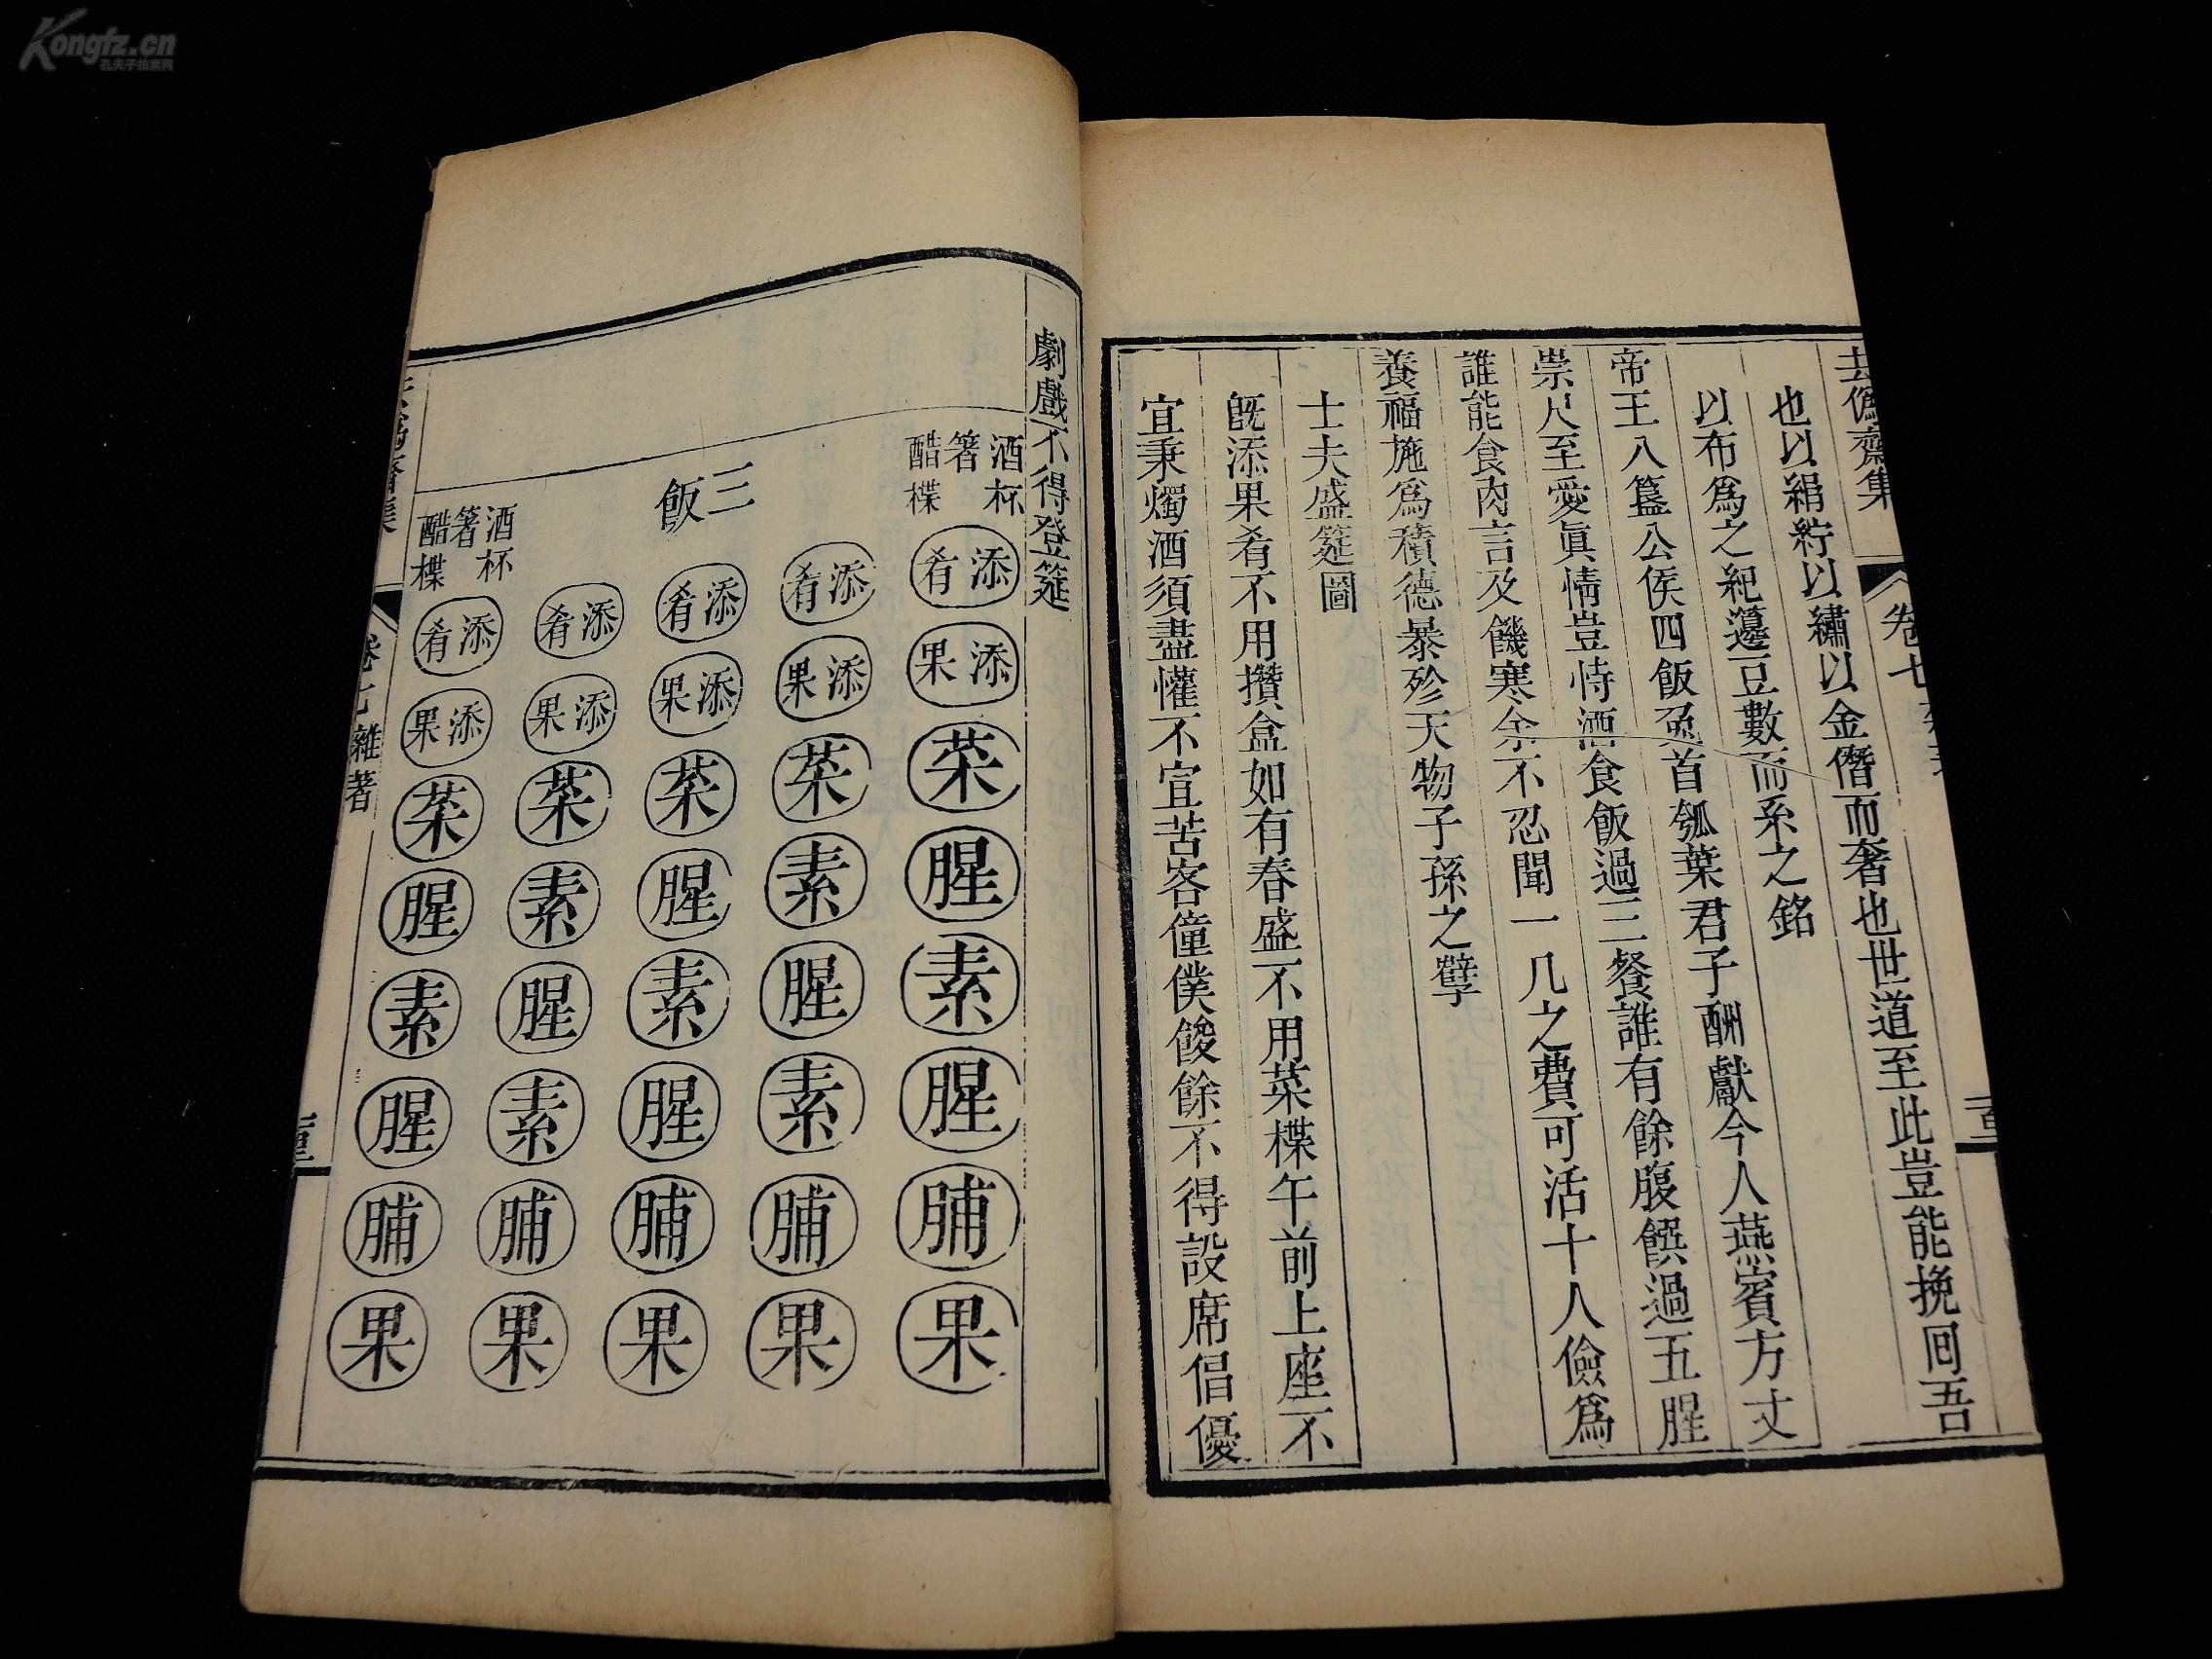 去僞齋集
卷七
也以絹紵以繡以金僭而奢也世道至此豈能挽囘吾
以布爲之紀籩豆數而系之銘
帝王八簋公侯四飯兔首瓠葉君子酬獻今人燕賓方丈
崇尺至愛眞情豈恃酒食飯過三餐誰有餘腹饌過五腥
誰能食肉言及饑寒余不忍聞一几之費可活十人儉爲
養福施爲積德暴殄天物子孫之孽
士夫盛筵圖
旣添果肴不用攢盒如有春盛不用菜楪午前上座不
宜秉燭酒須盡懽不宜苦客僮僕餕餘不得設席倡優
劇戲不得登筵
酒杯
箸
醋楪
添肴
添果
菜
腥
素
腥
脯
果
添肴
添果
菜
素
腥
素
脯
果
三飯
添肴
添果
菜
腥
素
腥
脯
果
添肴
添果
菜
素
腥
素
脯
果
酒杯
箸
醋楪
添肴
添果
菜
腥
素
腥
脯
果
卷七 雜著
Kongfz.cn
孔夫子拍卖网